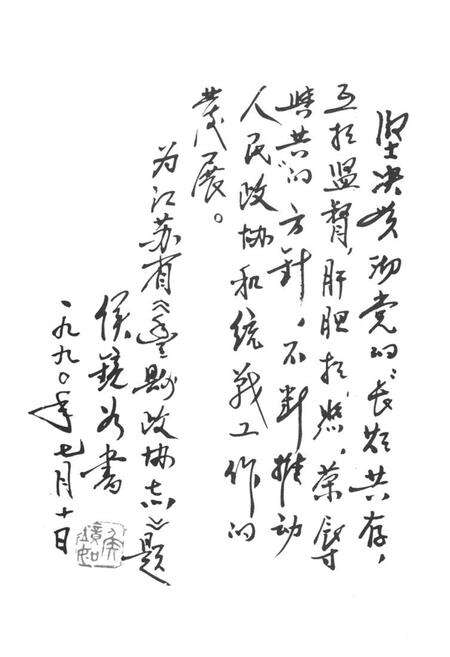 坚决贯彻党的“长期共存，
互相监督，肝胆相照，荣辱
與共”的方针，不断推动
人民政协和统战工作的
发展。
为江苏省《豐縣政协志》题
侯镜如书
一九九〇年七月十日
侯镜如